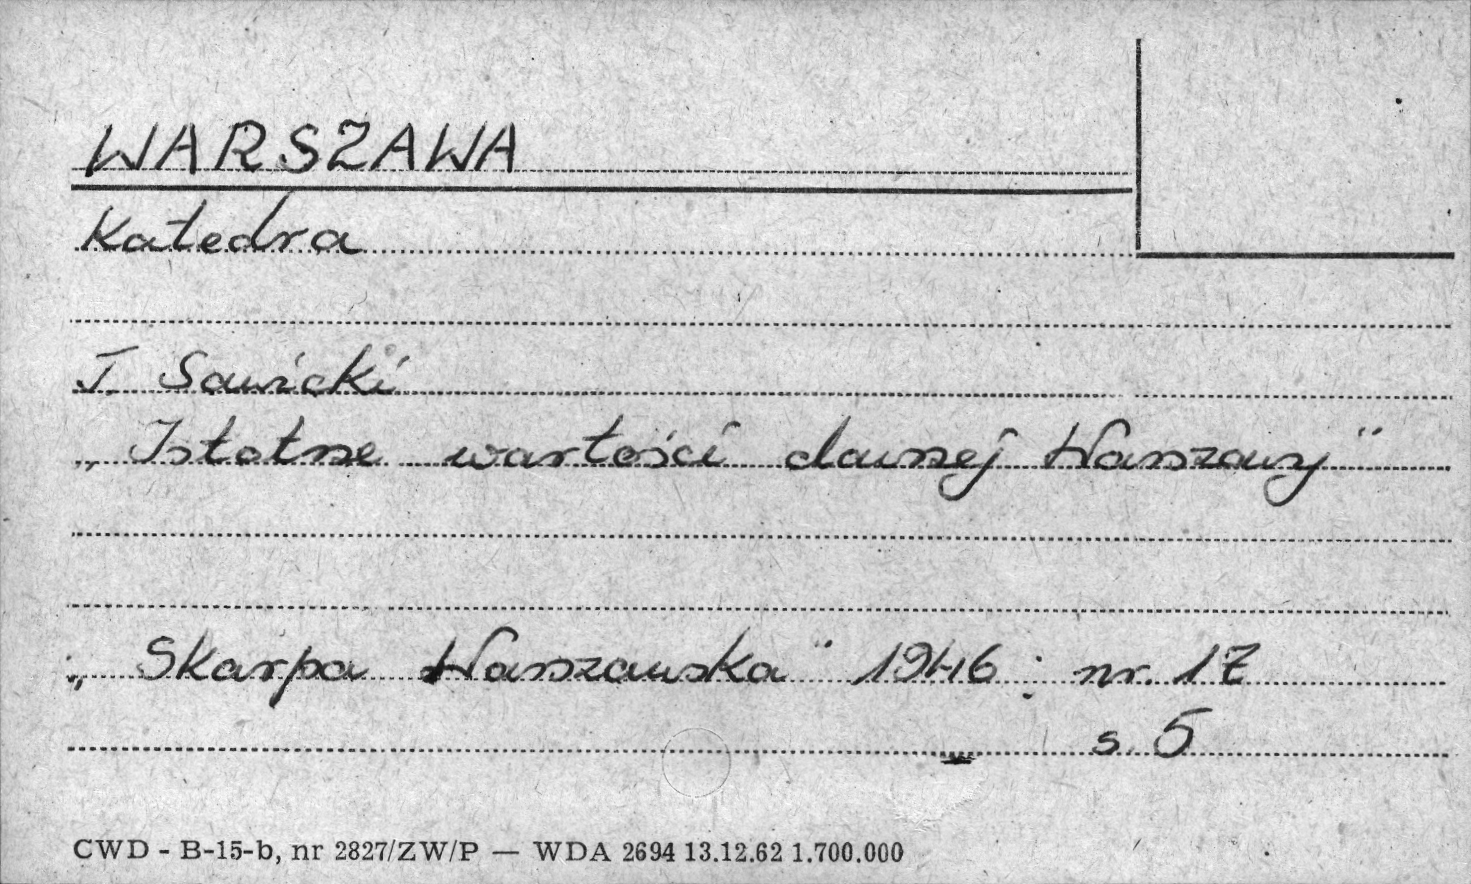 WARSZAWA
Katedra
T. Sawicki
„Istotne wartości dawnej Warszawy"
„Skarpa Warszawska" 1946: nr. 17
s. 5
CWD - B-15-b, nr 2827/ZW/P — WDA 2694 13.12.62 1.700.000